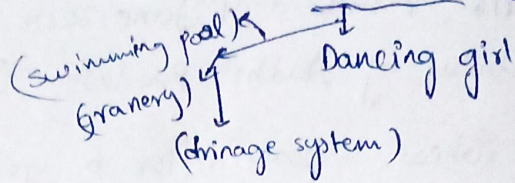 (swimming pool)
Dancing girl
Granery)
(drinage system)